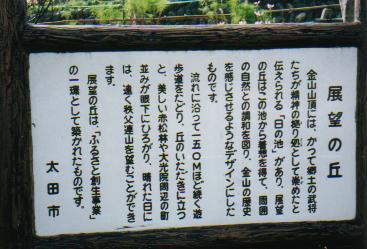 展望の丘
金山山頂には、かつて郷土の武将
たちが精神の拠り処として崇めたと
伝えられる「日の池」があり、展望
の丘はこの池から着想を得て、周囲
の自然との調和を図り、金山の歴史
を感じさせるようなデザインにした
ものです。
流れに沿って一五〇Mほど続く遊
歩道をたどり、丘のいただきに立つ
と、美しい赤松林や大光院周辺の町
並みが眼下にひろがり、晴れた日に
は、遠く秩父連山を望むことができ
ます。
展望の丘は、「ふるさと創生事業」
の一環として築かれたものです。
太田市